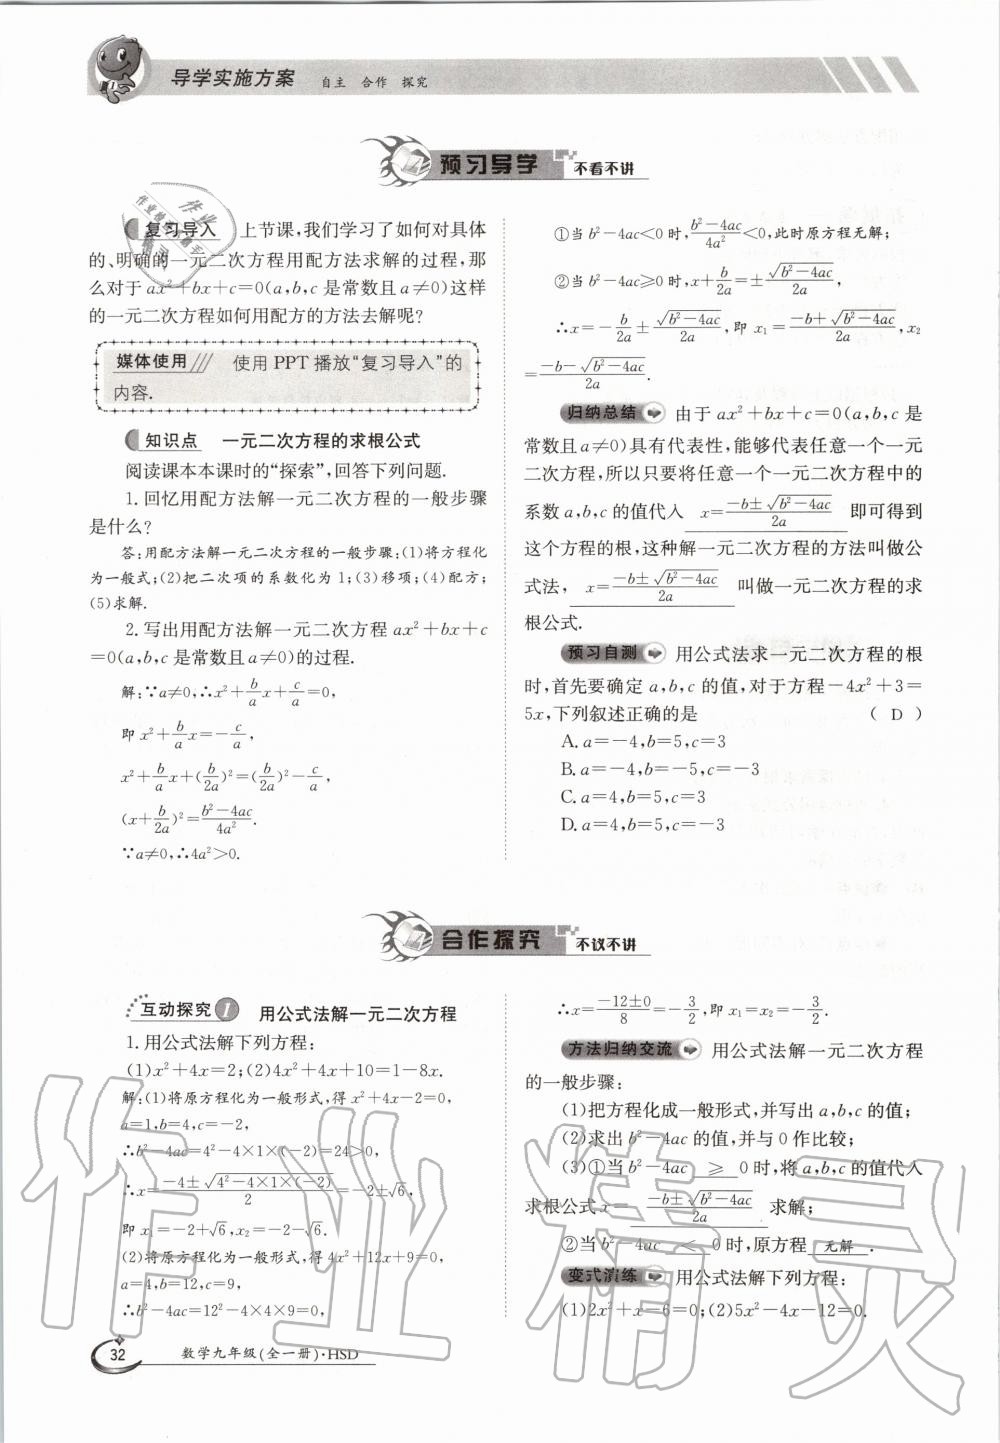 导学实施方案 自主 合作 探究
预习导学 不看不讲
复习导入 上节课,我们学习了如何对具体
的、明确的一元二次方程用配方法求解的过程,那
么对于ax²+bx+c=0(a,b,c是常数且a≠0)这样
的一元二次方程如何用配方的方法去解呢?
媒体使用 使用PPT播放“复习导入”的
内容.
知识点 一元二次方程的求根公式
阅读课本本课时的“探索”,回答下列问题.
1.回忆用配方法解一元二次方程的一般步骤
是什么?
答:用配方法解一元二次方程的一般步骤:(1)将方程化
为一般式;(2)把二次项的系数化为1;(3)移项;(4)配方;
(5)求解.
2.写出用配方法解一元二次方程ax²+bx+c
=0(a,b,c是常数且a≠0)的过程.
解:∵a≠0,∴x²+b/a x+c/a=0,
即x²+b/a x=-c/a,
x²+b/a x+(b/2a)²=(b/2a)²-c/a,
(x+b/2a)²=b²-4ac/4a².
∵a≠0,∴4a²>0.
①当b²-4ac<0时,b²-4ac/4a²<0,此时原方程无解;
②当b²-4ac≥0时,x+b/2a=±√b²-4ac/2a,
∴x=-b/2a±√b²-4ac/2a,即x₁=-b+√b²-4ac/2a,x₂
=-b-√b²-4ac/2a.
归纳总结 由于ax²+bx+c=0(a,b,c是
常数且a≠0)具有代表性,能够代表任意一个一元
二次方程,所以只要将任意一个一元二次方程中的
系数a,b,c的值代入 x=-b±√b²-4ac/2a 即可得到
这个方程的根,这种解一元二次方程的方法叫做公
式法, x=-b±√b²-4ac/2a 叫做一元二次方程的求
根公式.
预习自测 用公式法求一元二次方程的根
时,首先要确定a,b,c的值,对于方程-4x²+3=
5x,下列叙述正确的是 ( D )
A.a=-4,b=5,c=3
B.a=-4,b=-5,c=-3
C.a=4,b=5,c=3
D.a=4,b=5,c=-3
合作探究 不议不讲
互动探究 1 用公式法解一元二次方程
1.用公式法解下列方程:
(1)x²+4x=2;(2)4x²+4x+10=1-8x.
解:(1)将原方程化为一般形式,得x²+4x-2=0,
a=1,b=4,c=-2,
∴b²-4ac=4²-4×1×(-2)=24>0,
∴x=-4±√4²-4×1×(-2)/2=-2±√6,
即x₁=-2+√6,x₂=-2-√6.
(2)将原方程化为一般形式,得4x²+12x+9=0,
a=4,b=12,c=9,
∴b²-4ac=12²-4×4×9=0,
∴x=-12±0/8=-3/2,即x₁=x₂=-3/2.
方法归纳交流 用公式法解一元二次方程
的一般步骤:
(1)把方程化成一般形式,并写出a,b,c的值;
(2)求出b²-4ac的值,并与0作比较;
(3)①当b²-4ac ≥ 0时,将a,b,c的值代入
求根公式x= -b±√b²-4ac/2a 求解;
②当b²-4ac < 0时,原方程 无解 .
变式演练 用公式法解下列方程:
(1)2x²+x-6=0;(2)5x²-4x-12=0.
32 数学九年级(全一册)·HSD
作业精灵